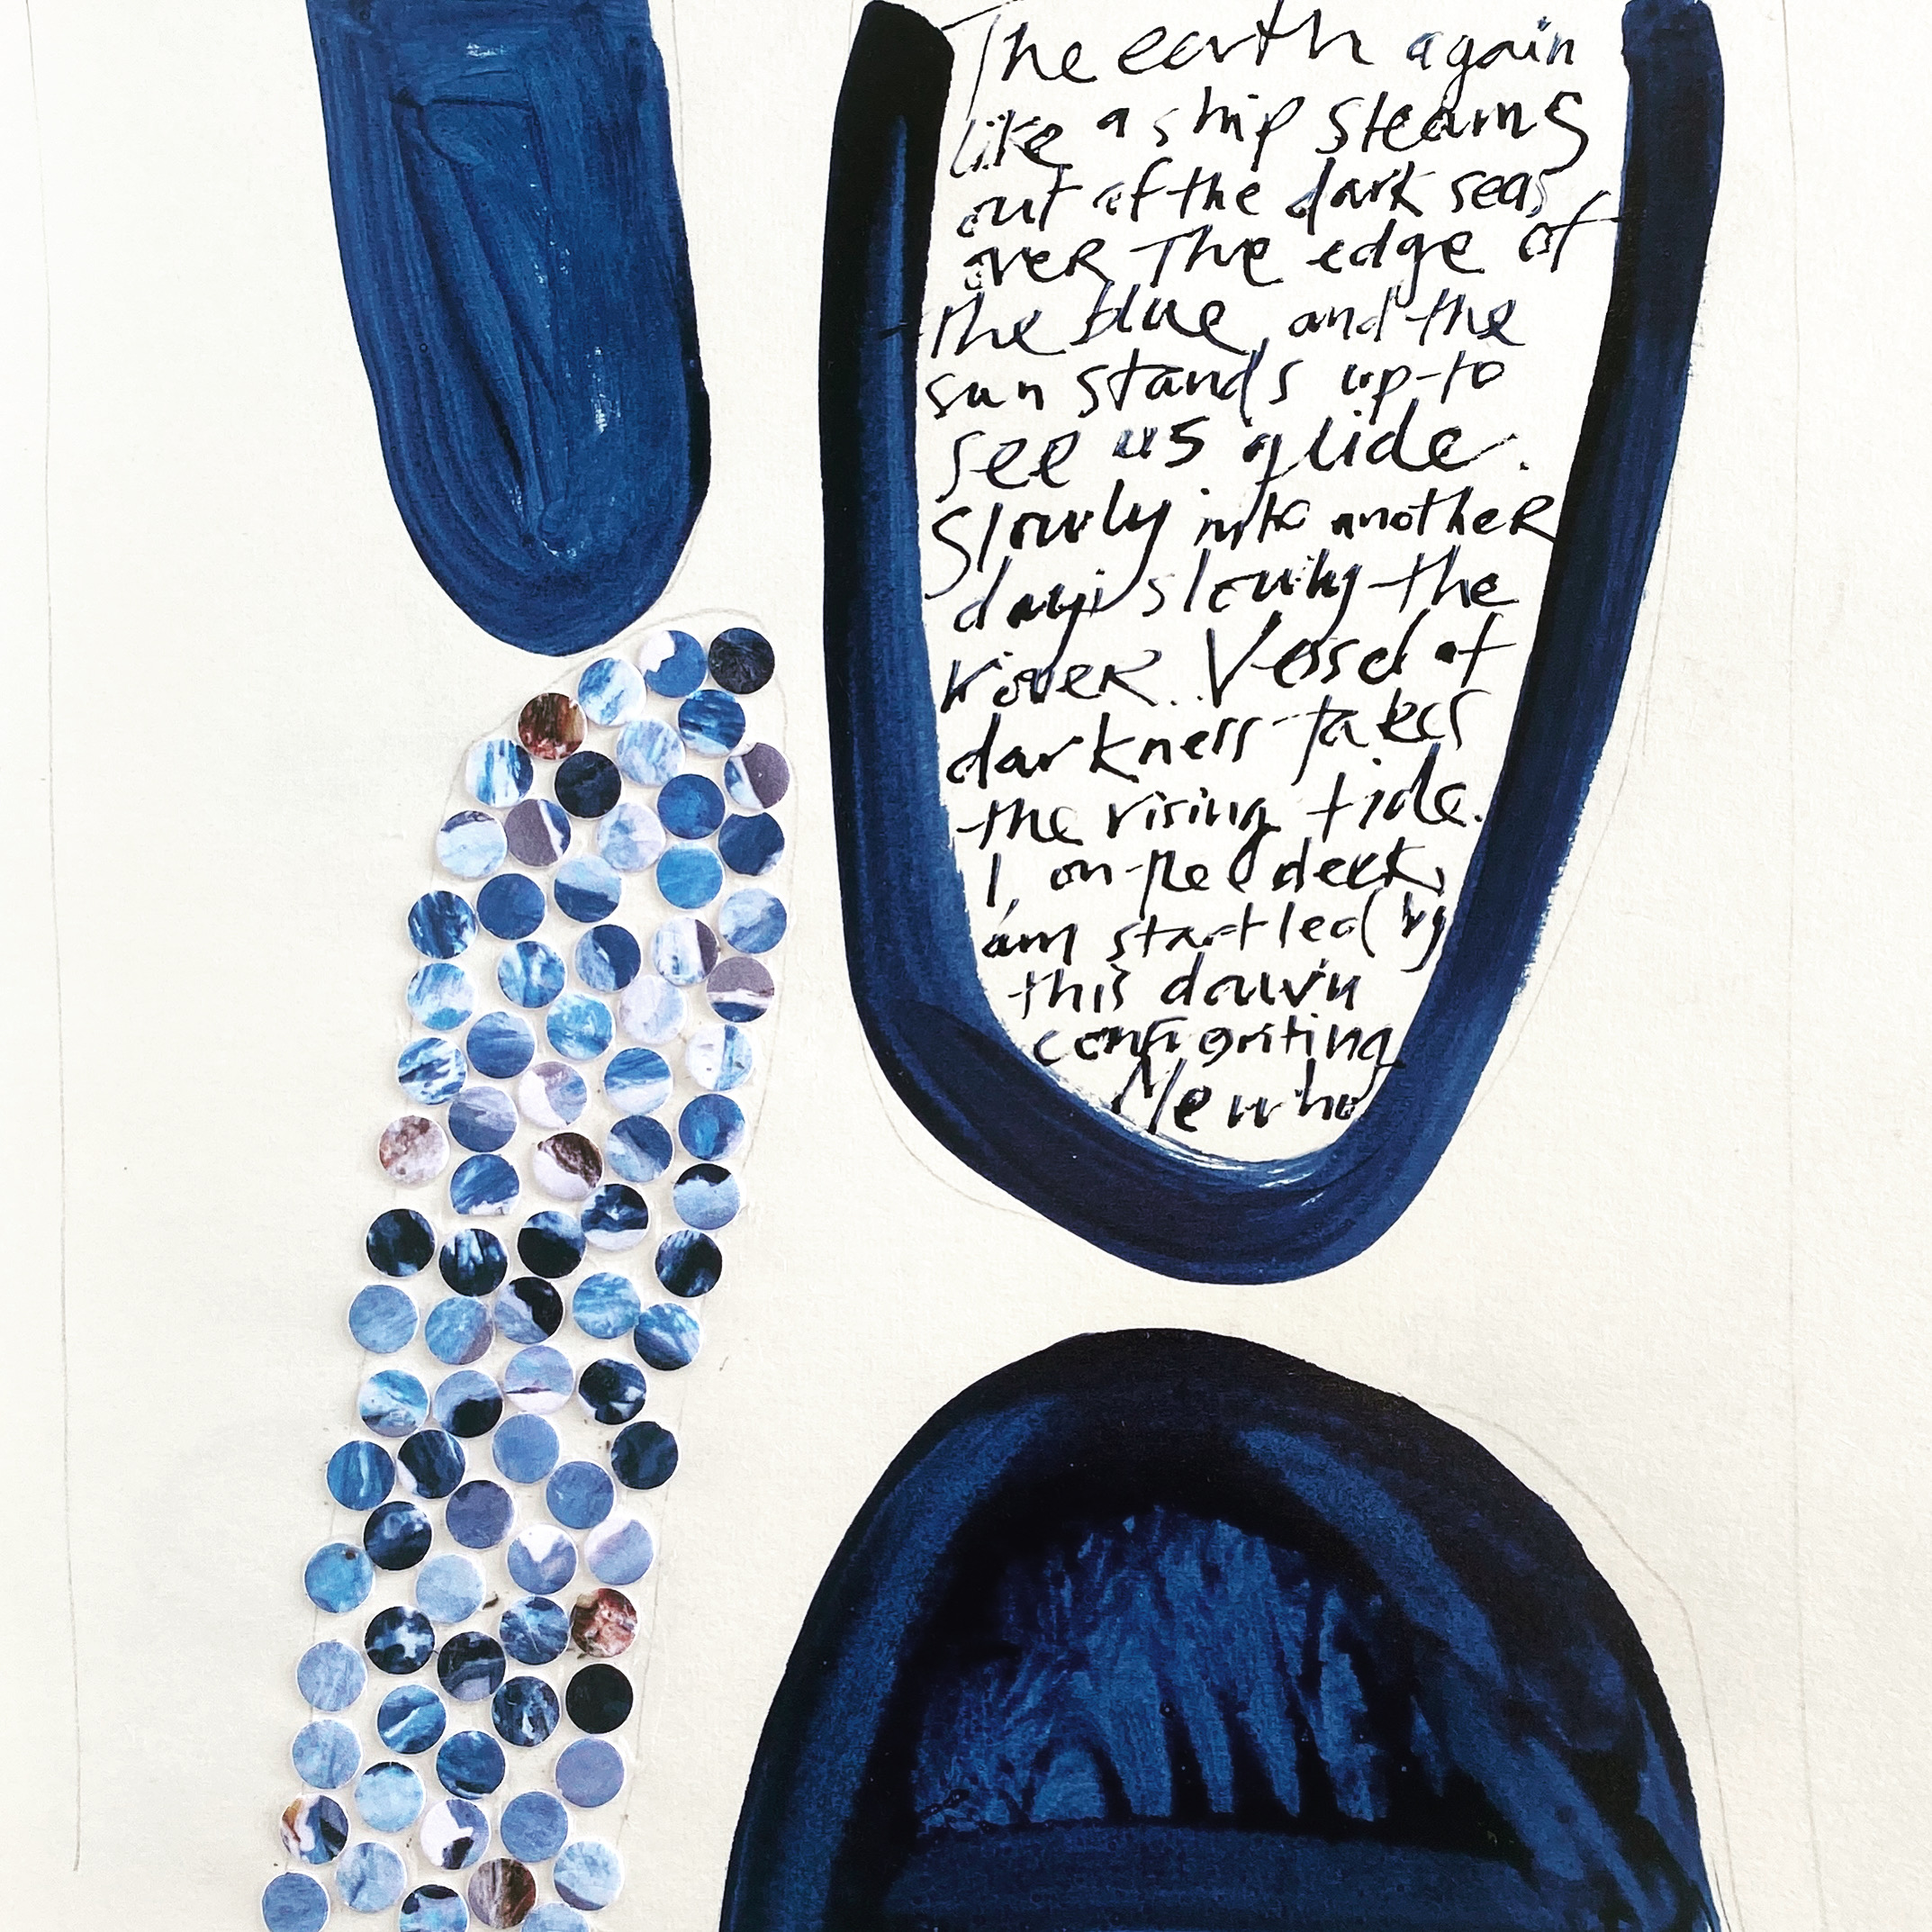 The earth again
like a ship steams
out of the dark seas
over the edge of
the blue, and the
sun stands up to
see us glide.
Slowly into another
day; slowly the
rover. Vessel of
darkness takes
the rising tide.
I, on the deck,
am startled by
this dawn
confronting
Me who